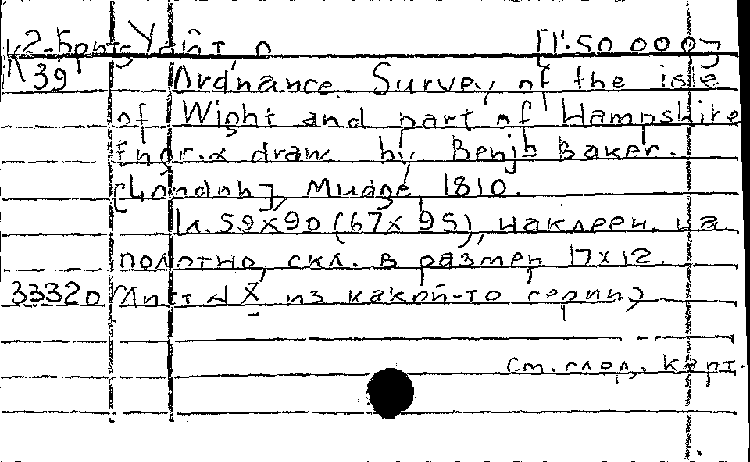 К 2-Брит Уайт, о [1:50 000]
39 Ordnance Survey of the isle
of Wight and part of Hampshire
Engr. & draw. by Benjb Baker.
[London], Mudge, 1810.
1л. 59x90 (67x95), наклеен. на
полотно, скл. в размер 17x12.
33320 (Лист № X из какой-то серии)
См. след. карт.